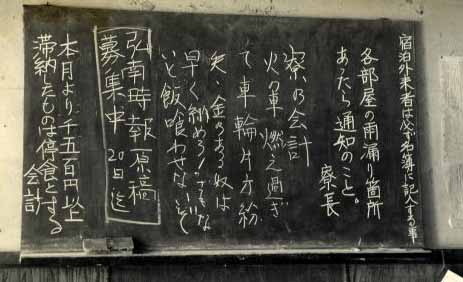 宿泊外来者は必ず名簿に記入する事
各部屋の雨漏り箇所
あったら通知のこと。
寮長
寮の会計
火の車燃え過ぎ
て車輪片方紛
失、金のある奴は
早く納めろ！でもな
いと飯喰わせないぞ
弘南時報原稿
募集中 20日迄
本月より千五百円以上
滞納したものは停食とする
会計